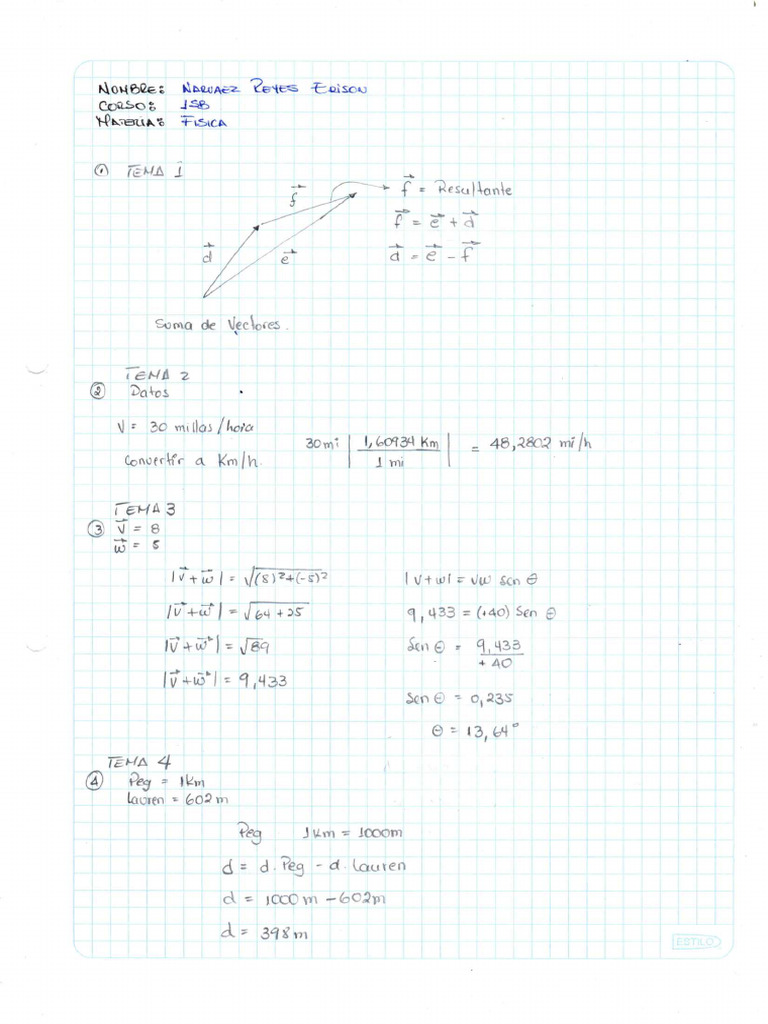 NOMBRE: NARVAEZ REYES EDISON
CURSO: 1SB
MATERIA: FISICA
① TEMA 1
f⃗ d⃗ e⃗
f⃗ = Resultante
f⃗ = e⃗ + d⃗
d⃗ = e⃗ - f⃗
Suma de Vectores.
TEMA 2
② Datos
V = 30 millas/hora
Convertir a Km/h.
30mi | 1,60934 Km / 1 mi | = 48,2802 mi/h
TEMA 3
③ V⃗ = 8
w⃗ = 5
|V⃗ + w⃗| = √(8)²+(-5)²
|V⃗ + w⃗| = √64 + 25
|V⃗ + w⃗| = √89
|V⃗ + w⃗| = 9,433
|v + w| = vw sen θ
9,433 = (+40) Sen θ
Sen θ = 9,433 / +40
Sen θ = 0,235
θ = 13,64°
TEMA 4
④ Peg = 1Km
Lauren = 602m
Peg 1Km = 1000m
d = d. Peg - d. Lauren
d = 1000m - 602m
d = 398m
ESTILO